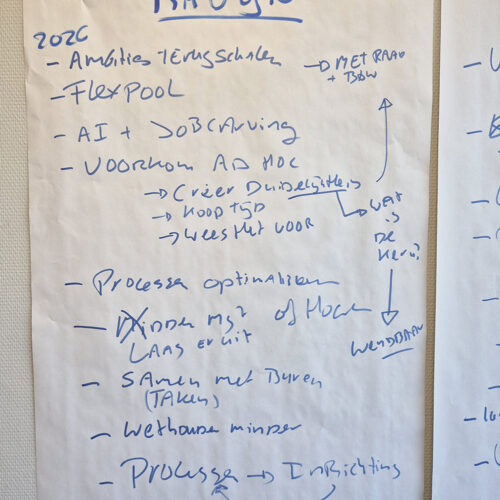 2026
- Ambities Terugschalen → MET RAAD
+ B&W
- FlexPOOL
- AI + JOBCArving
- VOORKOM AD HOC
→ Creëer Duidelijkheid
→ KOOP TIJD
→ Wees Het VOOR
→ WAT
is
De
Kern?
WendBAAR
- Processen optimaliseren
- Minder Mgt of Hoger
LAAG er uit
- SAmen met Buren
(TAken)
- Wethouder minder
- Processen → InRichting